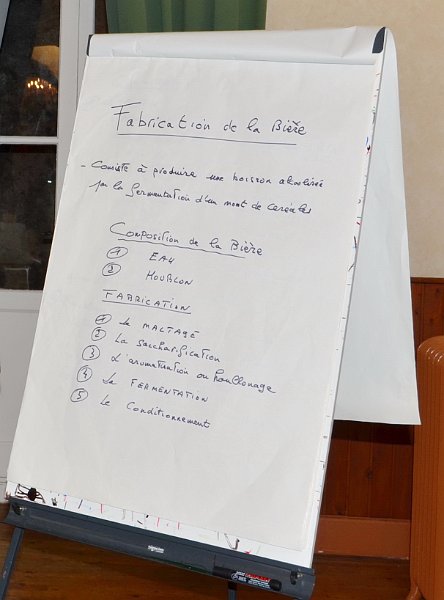 Fabrication de la Bière
- Consiste à produire une boisson alcoolisée
par la fermentation d'un mout de céréales
Composition de la Bière
① EAU
② HOUBLON
FABRICATION
① Le MALTAGE
② La saccharification
③ L'aromatisation ou houblonnage
④ La FERMENTATION
⑤ Le Conditionnement